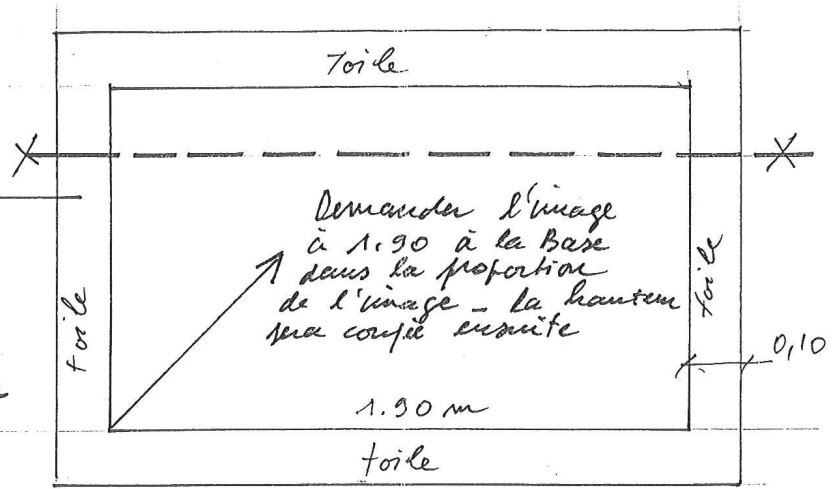 Toile
Demander l'image
à 1.90 à la Base
dans la proportion
de l'image - la hauteur
sera coupée ensuite
toile
toile
0,10
1.90 m
toile